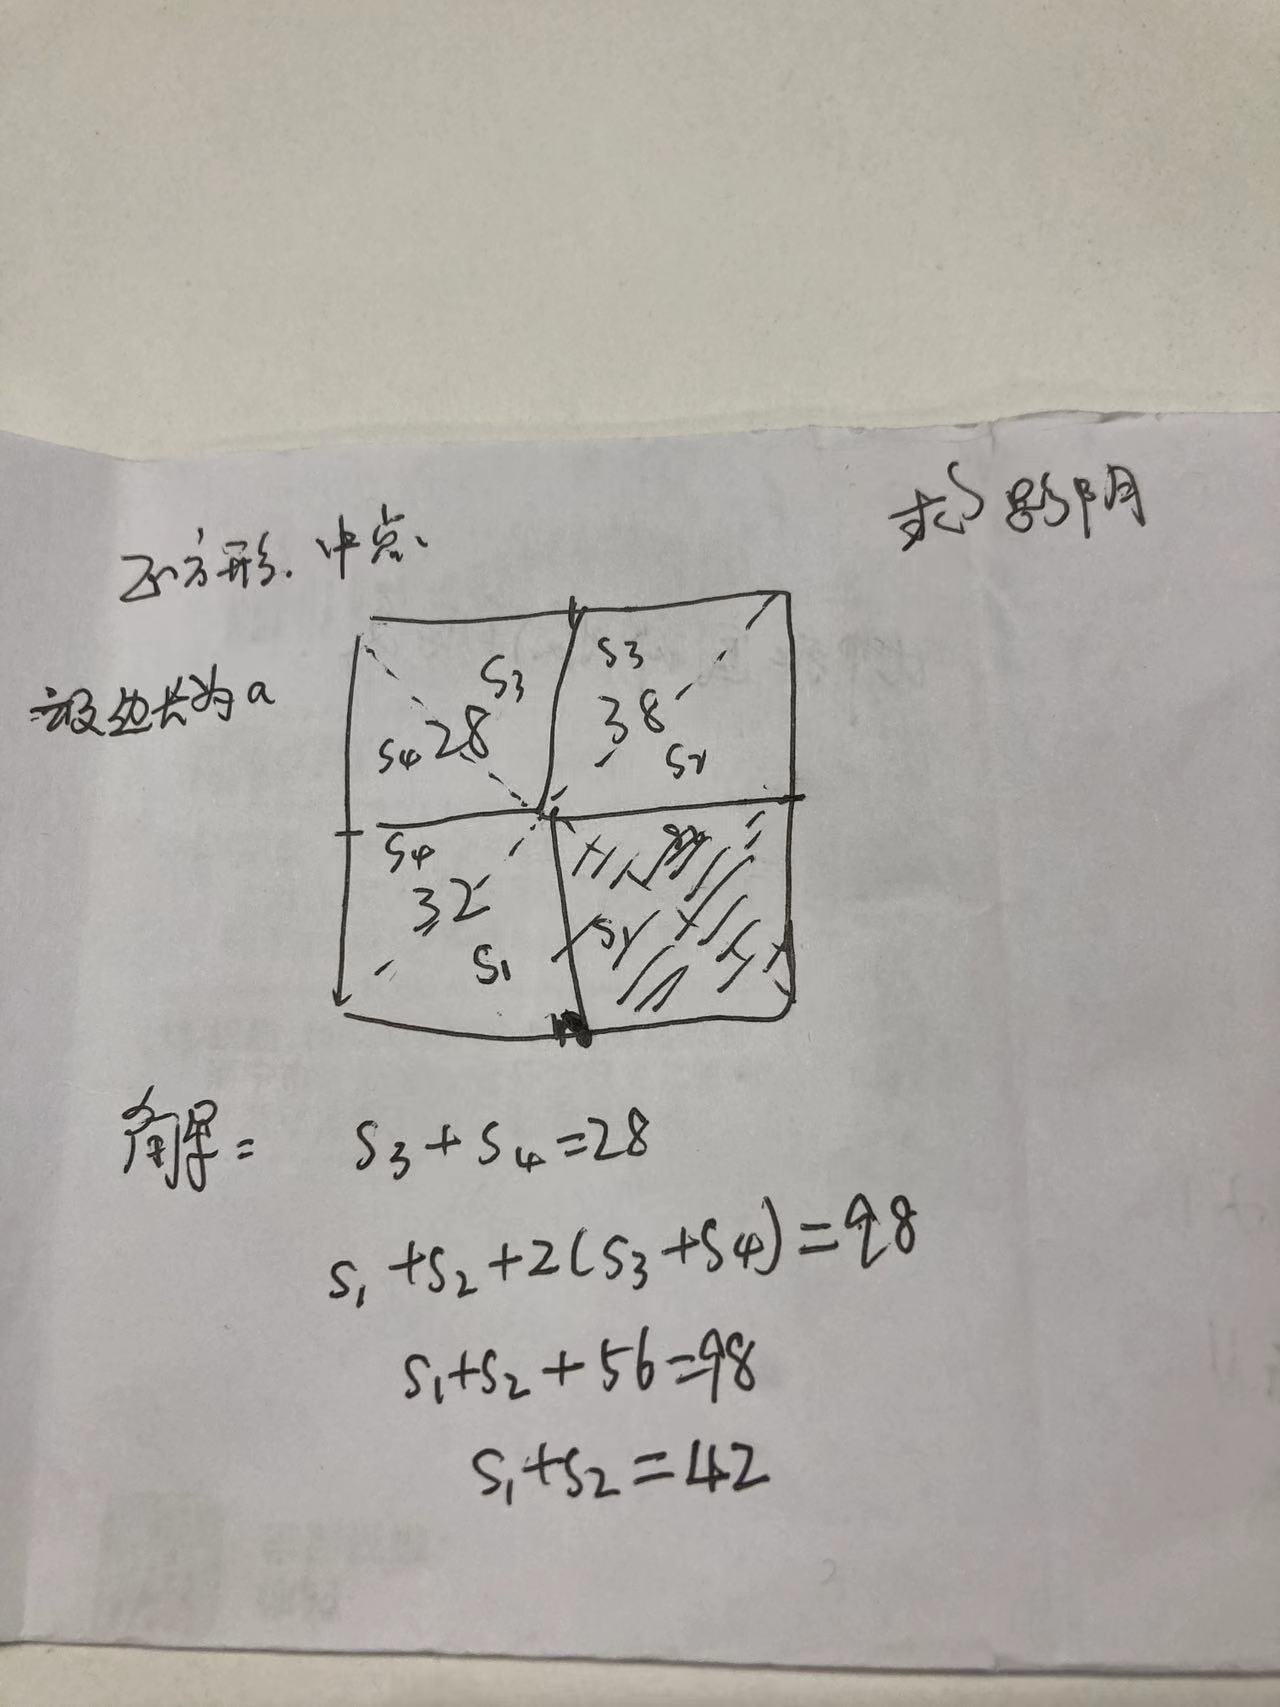 求S影阴
正方形.中点、
设边长为a
S3 S3
28 38
S4 S2
S4
32 S2
S1
解:
S3+S4=28
S1+S2+2(S3+S4)=98
S1+S2+56=98
S1+S2=42